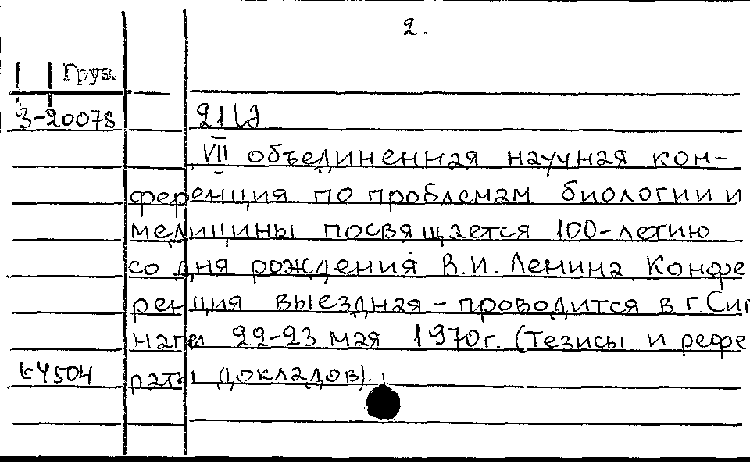 2.
Груз.
3-20078
VII объединенная научная кон-
ференция по проблемам биологии и
медицины посвящается 100-летию
со дня рождения В.И. Ленина Конфе
ренция выездная - проводится в г. Сиг
наги 22-23 мая 1970г. (Тезисы и рефе
раты докладов).